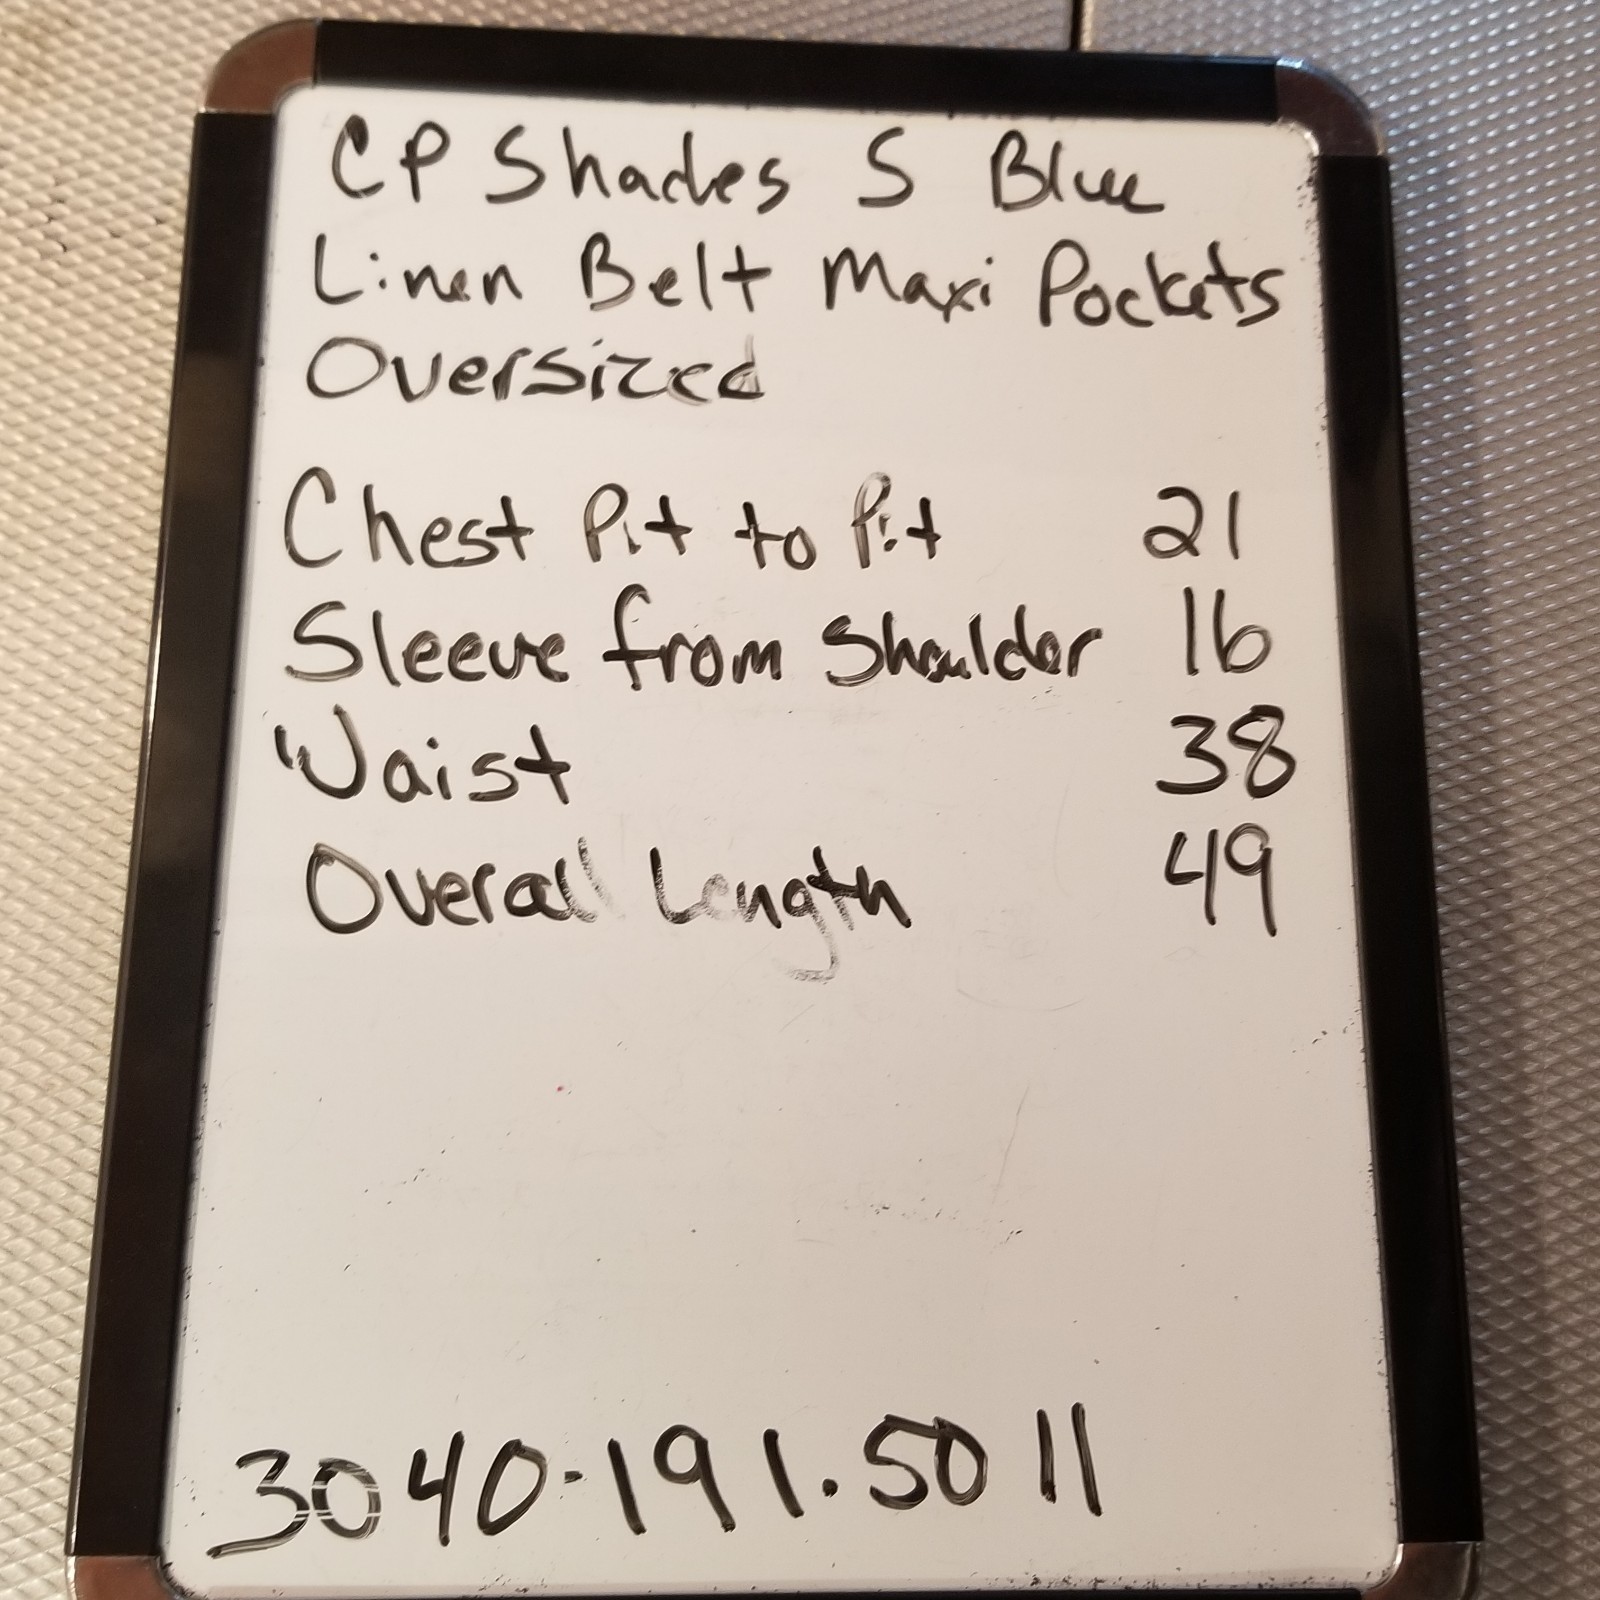 CP Shades S Blue
Linen Belt Maxi Pockets
Oversized
Chest Pit to Pit 21
Sleeve from Shoulder 16
Waist 38
Overall Length 49
3040-191.5011